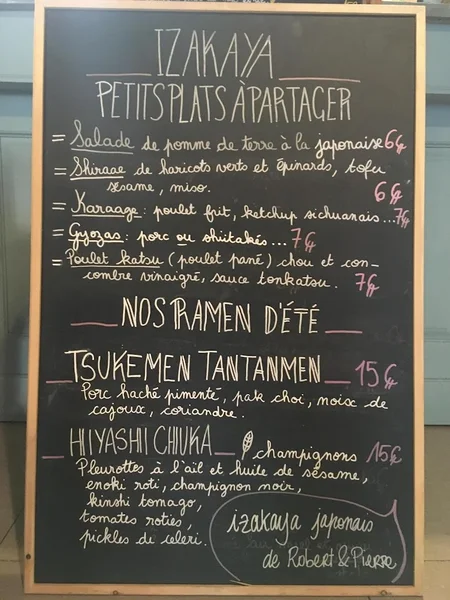 IZAKAYA
PETITS PLATS À PARTAGER
= Salade de pomme de terre à la japonaise 6€
= Shiraae de haricots verts et épinards, tofu
sésame, miso. 6€
= Karaage : poulet frit, ketchup sichuanais... 7€
= Gyozas : porc ou shiitakés... 7€
= Poulet katsu (poulet pané) chou et con-
combre vinaigré, sauce tonkatsu. 7€
NOS RAMEN D'ÉTÉ
TSUKEMEN TANTANMEN 15€
Porc haché pimenté, pak choi, noix de
cajoux, coriandre.
HIYASHI CHUKA champignons 15€
Pleurottes à l'ail et huile de sésame,
enoki roti, champignon noir,
kinshi tomago,
tomates roties,
pickles de celeri.
izakaya japonais
de Robert & Pierre